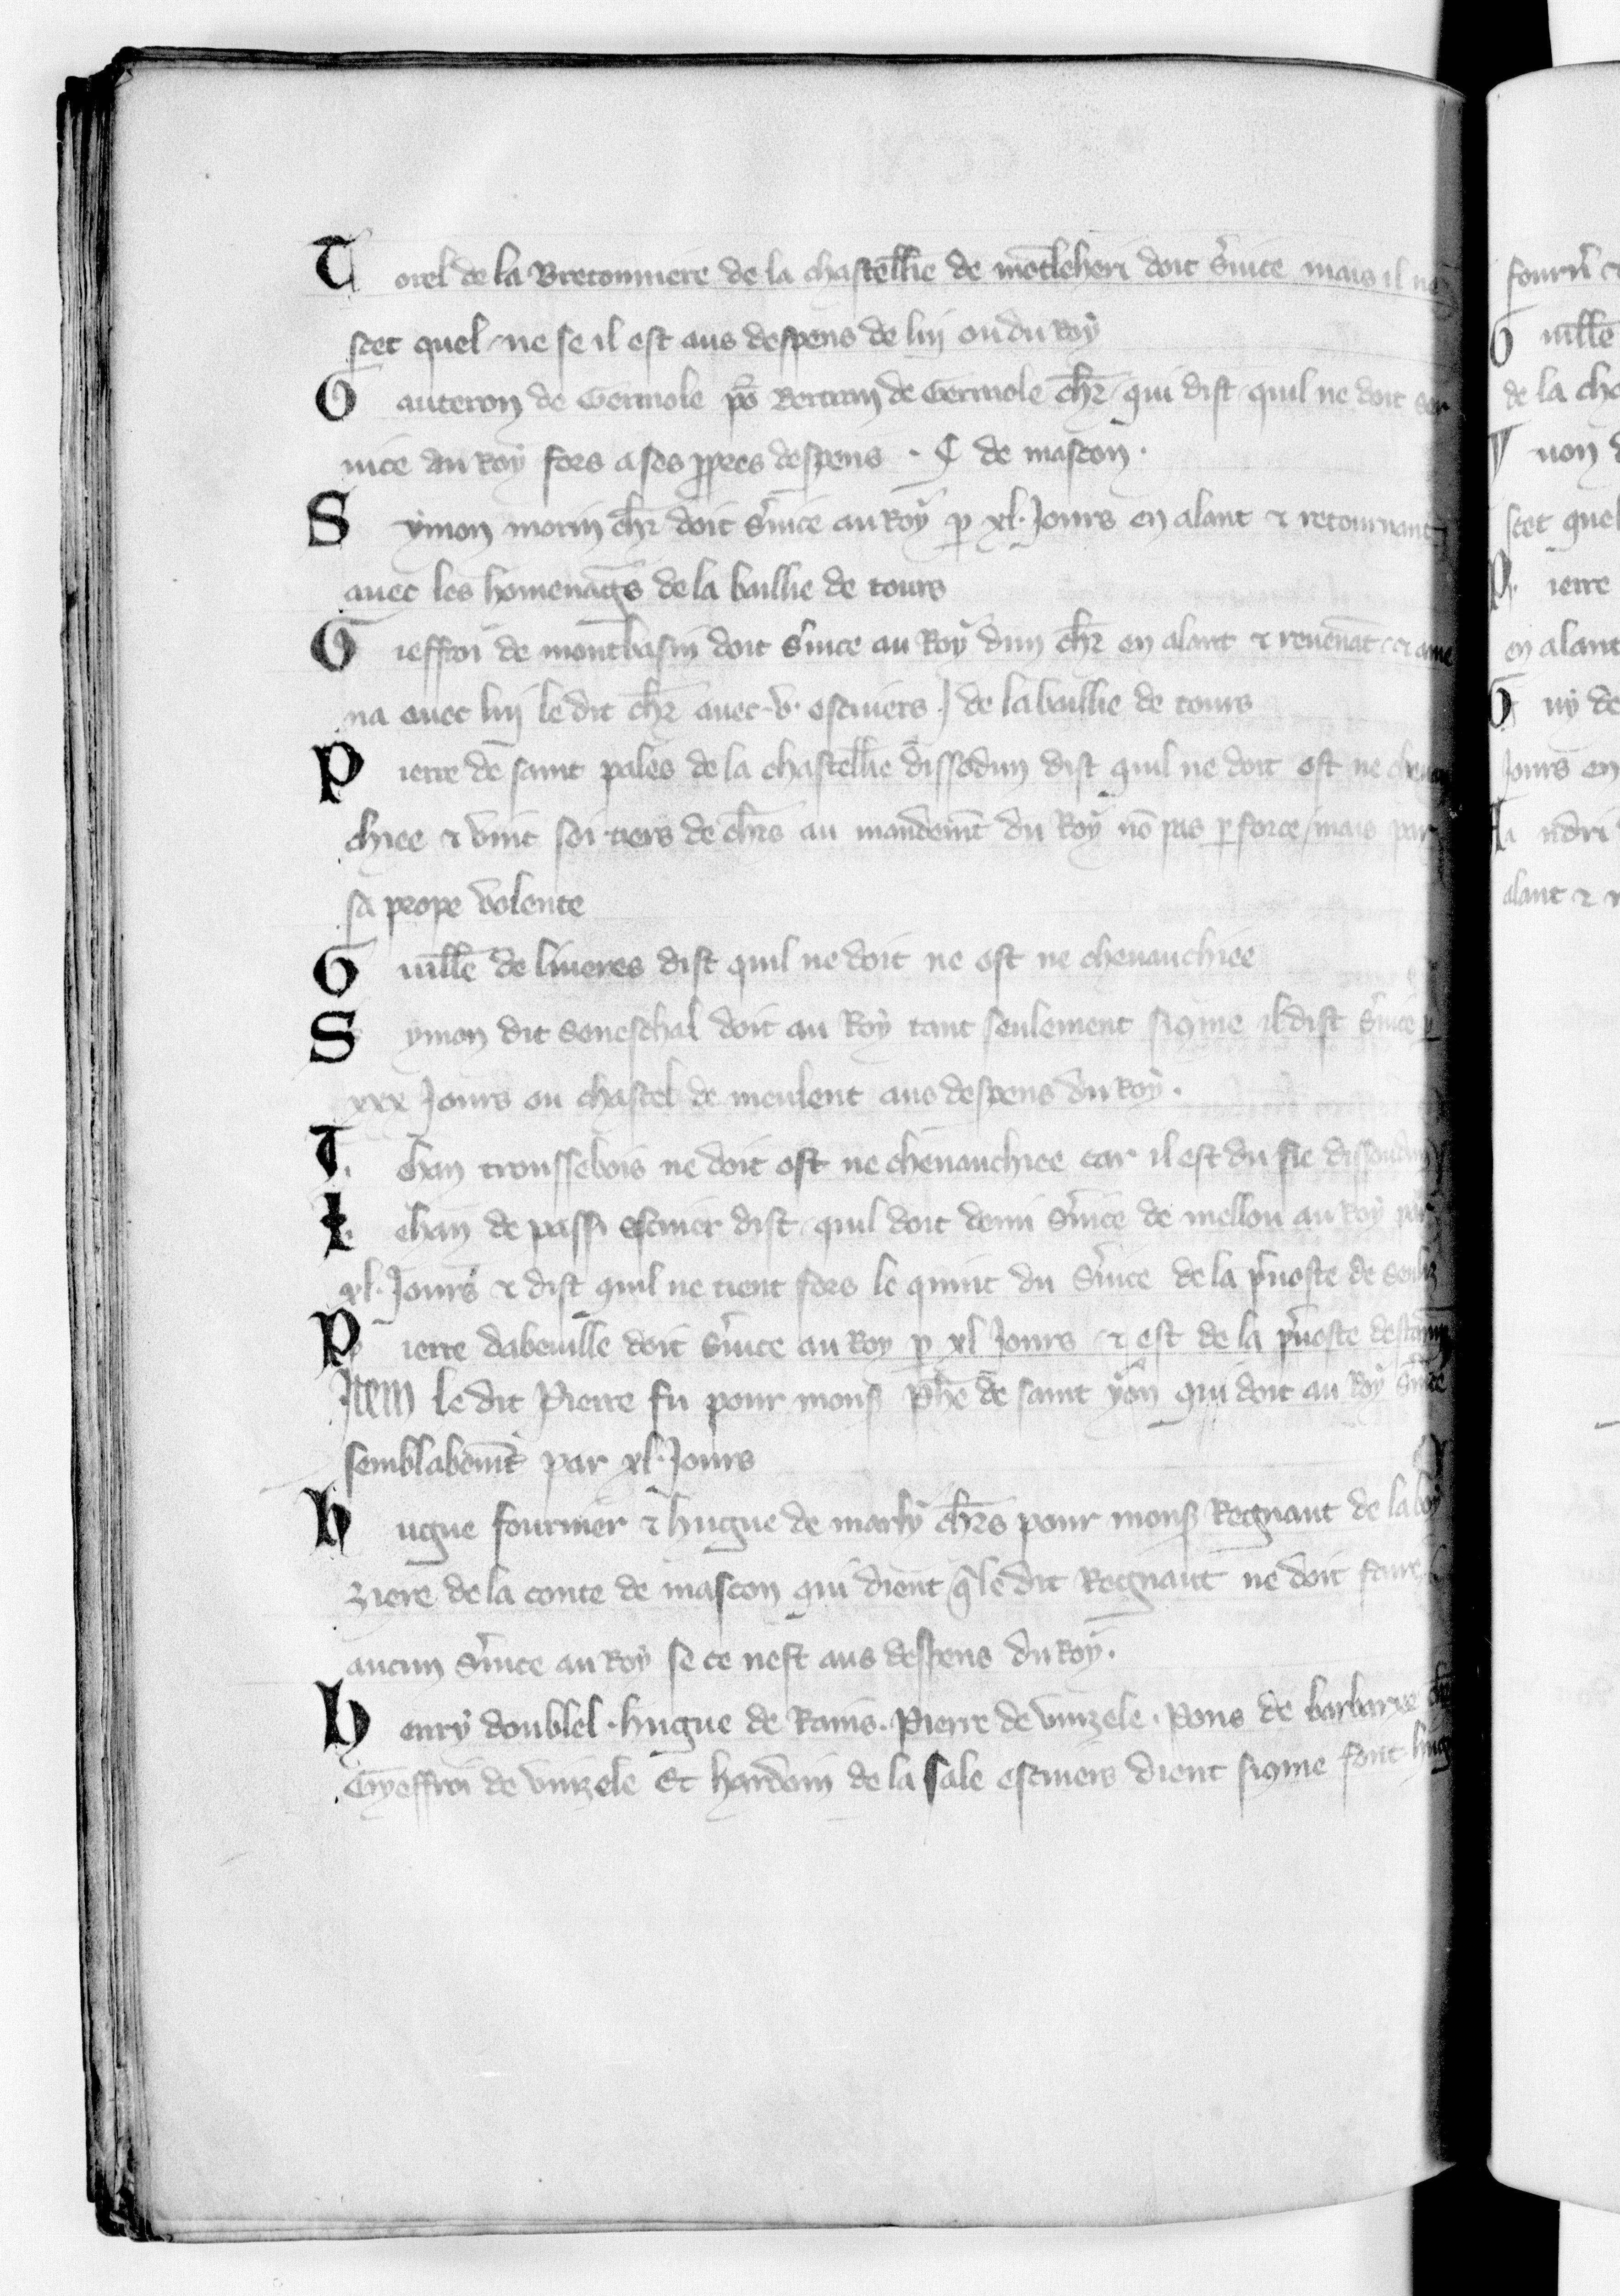 Torel de la Bretonniere de la chastell̃ie de mõtleheri doit s̃uice mais il ne
scet quel / ne se il est aus despens de luy ou du Roy
Gauteron de Germole põ Bertran de Germole ch̃r / qui dist / quil ne doit ser
uice au Roy fors a ses ꝓpres despens . C de mascon .
Symon morin ch̃r doit s̃uice au Roy ꝑ xl. Jours en alant & retournant
auec les homenag̃s de la baillie de tours
Gieffroi de montbasin doit s̃uice au Roy dun ch̃r en alant & reuenãt / & ame
na auec luy le dit ch̃r auec .v. escuiers . J de la baillie de tours
Pierre de saint pales de la chastell̃ie dissodun dist quil ne doit ost ne cheuau
chiee & vint soi tiers de ch̃rs au mandem̃t du Roy nõ pas ꝑ force / mais par
sa propre volente
Guill̃e de lineres dist quil ne doit ne ost ne cheuauchiee
Symon dit Seneschal doit au Roy tant seulement siq̃me il dist s̃uice ꝑ
xxx Jours ou chastel de meulent aus despens du Roy .
J. ehan troussebois ne doit ost ne cheuauchiee car il est du fie dissoudun
I. ehan de passi escuier dist / quil doit demi s̃uice de mellou au Roy par
xl. Jours & dist quil ne tient fors le quint du s̃uice de la p̃uoste de senliz
Pierre dabeuille doit s̃uice au Roy ꝑ xl Jours & est de la p̃uoste destamp
Item le dit Pierre fu pour mons̃ Ph̃e de saint yon qui doit au Roy s̃uice
semblablem̃t par xl. Jours
hugue fournier & hugue de marly ch̃rs pour mons̃ Regnaut de la boy
ziere de la conte de mascon qui dient q̃ le dit Regnaut ne doit faire
aucun s̃uice au Roy se ce nest aus despens du Roy .
henry doublel . hugue de Rains . Pierre de vinzele . Pons de barbarxe
Gyeffroi de vinzele Et hardoin de la sale escuiers dient siq̃me font hug
fourñ &
Guill̃e
de la cha
uon d
scet quel
P. ierre
en alant
Guy de
Jours en
A. ndri
alant &